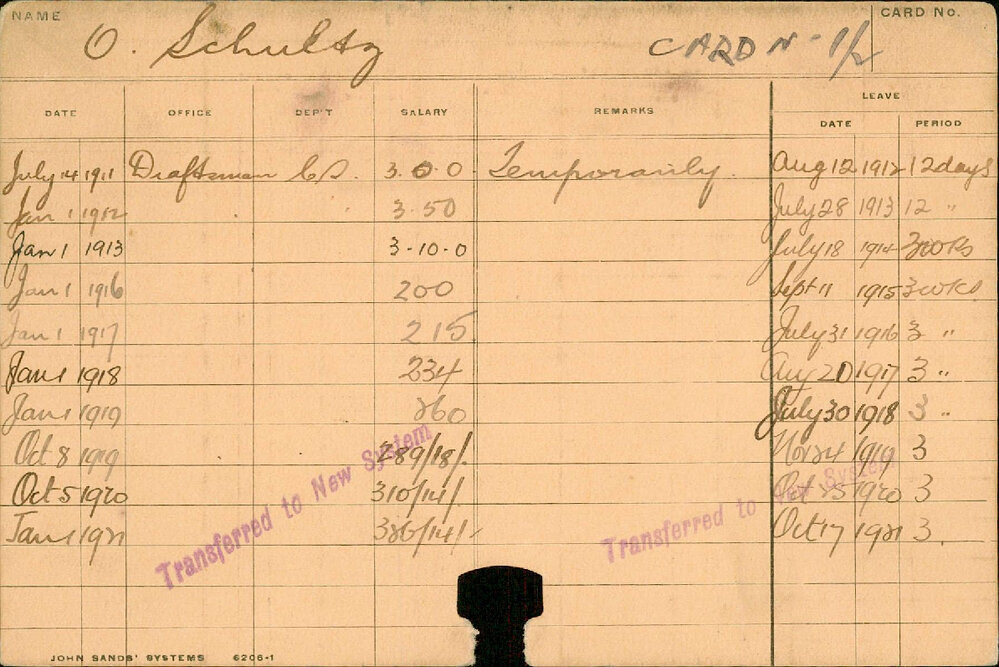 NAME O. Schultz CARD No. CARD No 1/2
LEAVE
DATE OFFICE DEP'T SALARY REMARKS DATE PERIOD
July 14 1911 Draftsman 3. 0. 0 Temporarily. Aug 12 1912 12 days
Jan 1 1912 3. 5 0 July 28 1913 12 "
Jan 1 1913 3-10-0 July 18 1914 3 wks
Jan 1 1916 200 Sept 11 1915 3 wks
Jan 1 1917 215 July 31 1916 3 "
Jan 1 1918 234 Aug 20 1917 3 "
Jan 1 1919 260 July 30 1918 3 "
Oct 8 1919 289/18/. Nov 24 1919 3
Oct 5 1920 310/14/ Oct 25 1920 3
Jan 1 1921 326/14/- Oct 17 1921 3.
Transferred to New System
Transferred to New System
JOHN SANDS' SYSTEMS 6206-1